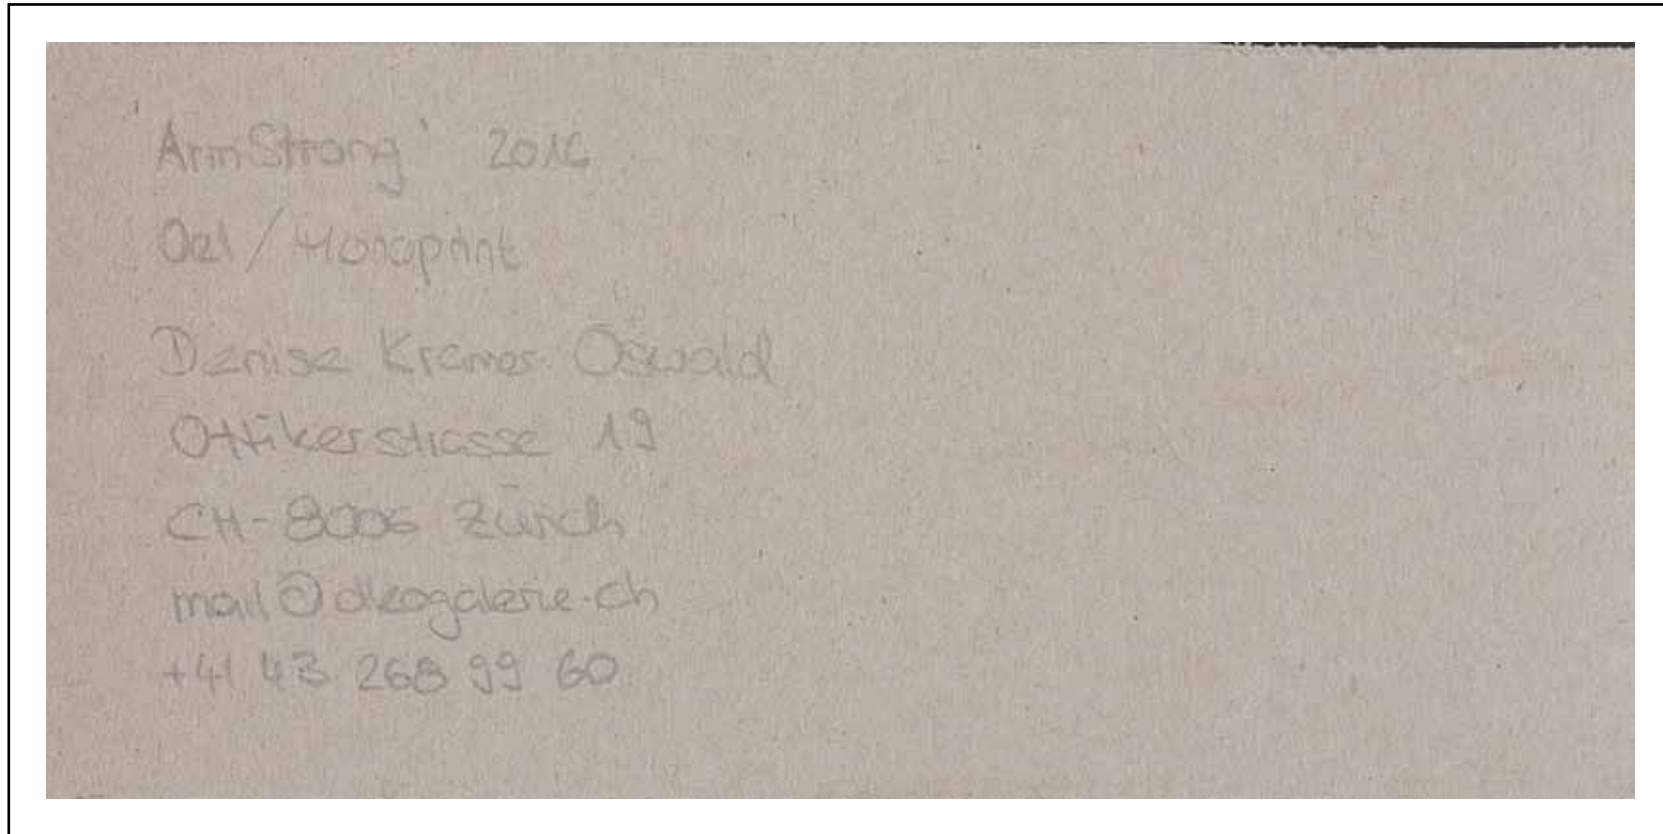 'ArmStrong' 2016
Oel / Monoprint
Denise Kramer Oswald
Ottikerstrasse 19
CH-8006 Zürich
mail@dkogalerie.ch
+41 43 268 99 60